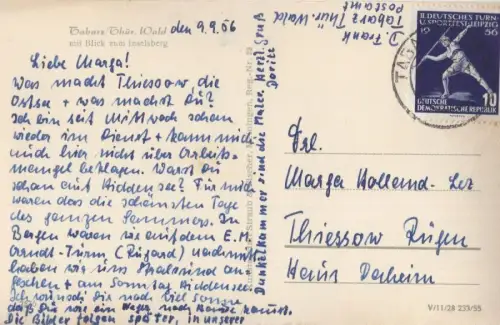 Tabarz Thür. Wald
mit Blick zum Inselsberg
den 9.9.56
Liebe Marga!
Was macht Thiessow, die
Ostsee + was machst Du?
Ich bin seit Mittwoch schon
wieder im Dienst + kann mich
auch hier nicht über Arbeits-
mangel beklagen. Warst Du
schon auf Hiddensee? Für mich
waren das die schönsten Tage
des ganzen Sommers. In
Bergen waren wir auf dem E.M.
Arndt-Turm (Rügard) nachmitt.
haben wir uns Stralsund an-
gesehen + am Sonntag Hiddensee.
Ich wünsch Dir noch viel Sonne,
daß Du wie ein Neger nach Hause kommst.
Die Bilder folgen später, in unserer
Dunkelkammer sind die Maler. Herzl. Gruß
Doritt
D. Frank
Tabarz Thür Wald
Postamt
II. DEUTSCHES TURN-
U. SPORTFEST LEIPZIG
1956
10
DEUTSCHE
DEMOKRATISCHE REPUBLIK
TABA
Frl.
Marga
Thiessow Rügen
Haus Daheim
V/11/28 233/55